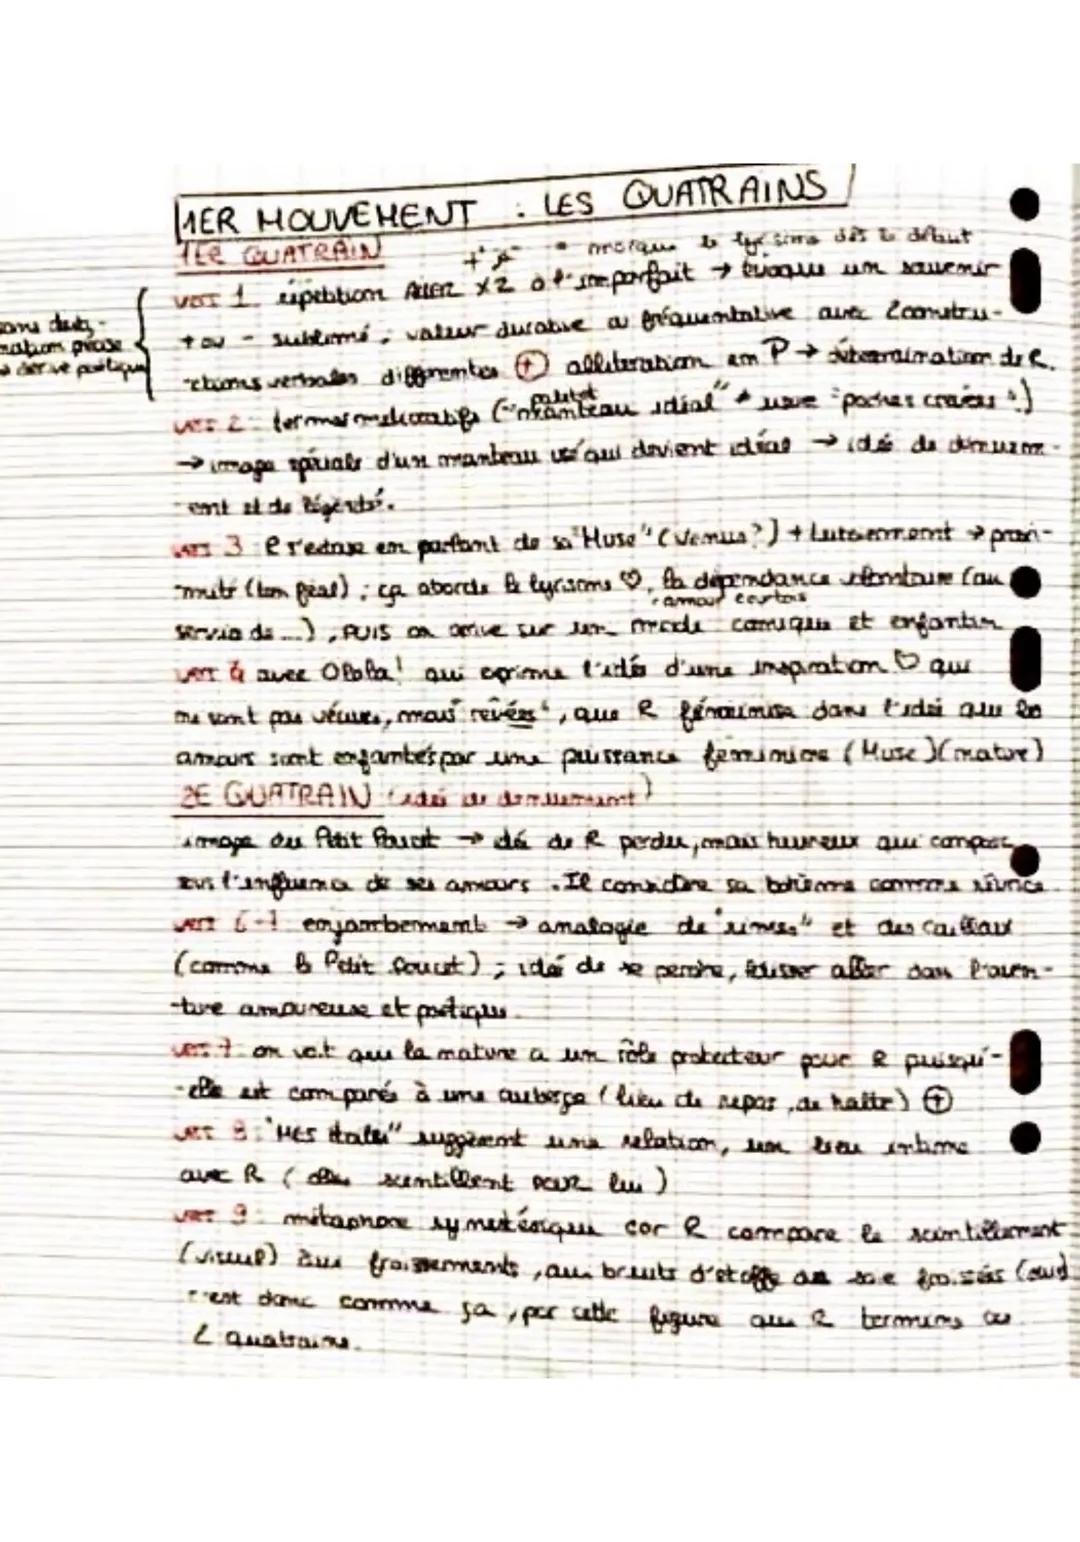 1ER MOUVEMENT : LES QUATRAINS
1ER QUATRAIN
+ "je" = marque le lyrisme dès le début
vers 1 répétition ALLER x2 à l'imparfait → évoque un souvenir
+ ou - sublimé ; valeur durative ou fréquentative avec 2 constru-
ctions verbales différentes ⊕ allitération en P → détermination de R.
sans desti-
nation précise
→ dérive poétique
vers 2 : termes mélioratifs ("manteau idéal" + usure "poches crevées")
paletot
→ image spéciale d'un manteau usé qui devient idéal → idée de dénuem-
ent et de légèreté.
vers 3 R s'extase en parlant de sa "Muse" (Venus?) + tutoiement → proxi-
mité (ton féal) ; ça aborde le lyrisme ♡, la dépendance volontaire (au
amour courtois
service de ...), PUIS on arrive sur un mode comique et enfantin
vers 4 avec Olala! qui exprime l'idée d'une inspiration ♡ qui
ne sont pas vécues, mais "rêvées", que R féminise dans l'idée que les
amours sont enfantés par une puissance féminine (Muse)(nature)
2E QUATRAIN (idée de dénuement)
image du Petit Poucet → de R perdu, mais heureux qui compose
sous l'influence de ses amours. Il considère sa bohème comme
vers 6-7 enjambement → analogie de "rimes" et des cailloux
(comme le Petit Poucet) ; idée de se perdre, laisser aller dans l'aven-
ture amoureuse et poétique.
vers 7 on voit que la nature a un rôle protecteur pour R puisqu'-
elle est comparée à une auberge (lieu de repos, de halte) ⊕
vers 8 : "MES étoiles" suggèrent une relation, un lieu intime
avec R (elles scintillent POUR lui)
vers 9 : métaphore synesthésique car R compare le scintillement
(visuel) aux froissements, aux bruits d'étoffe de soie froissés
c'est donc comme ça, par cette figure que R termine ces
2 quatrains.